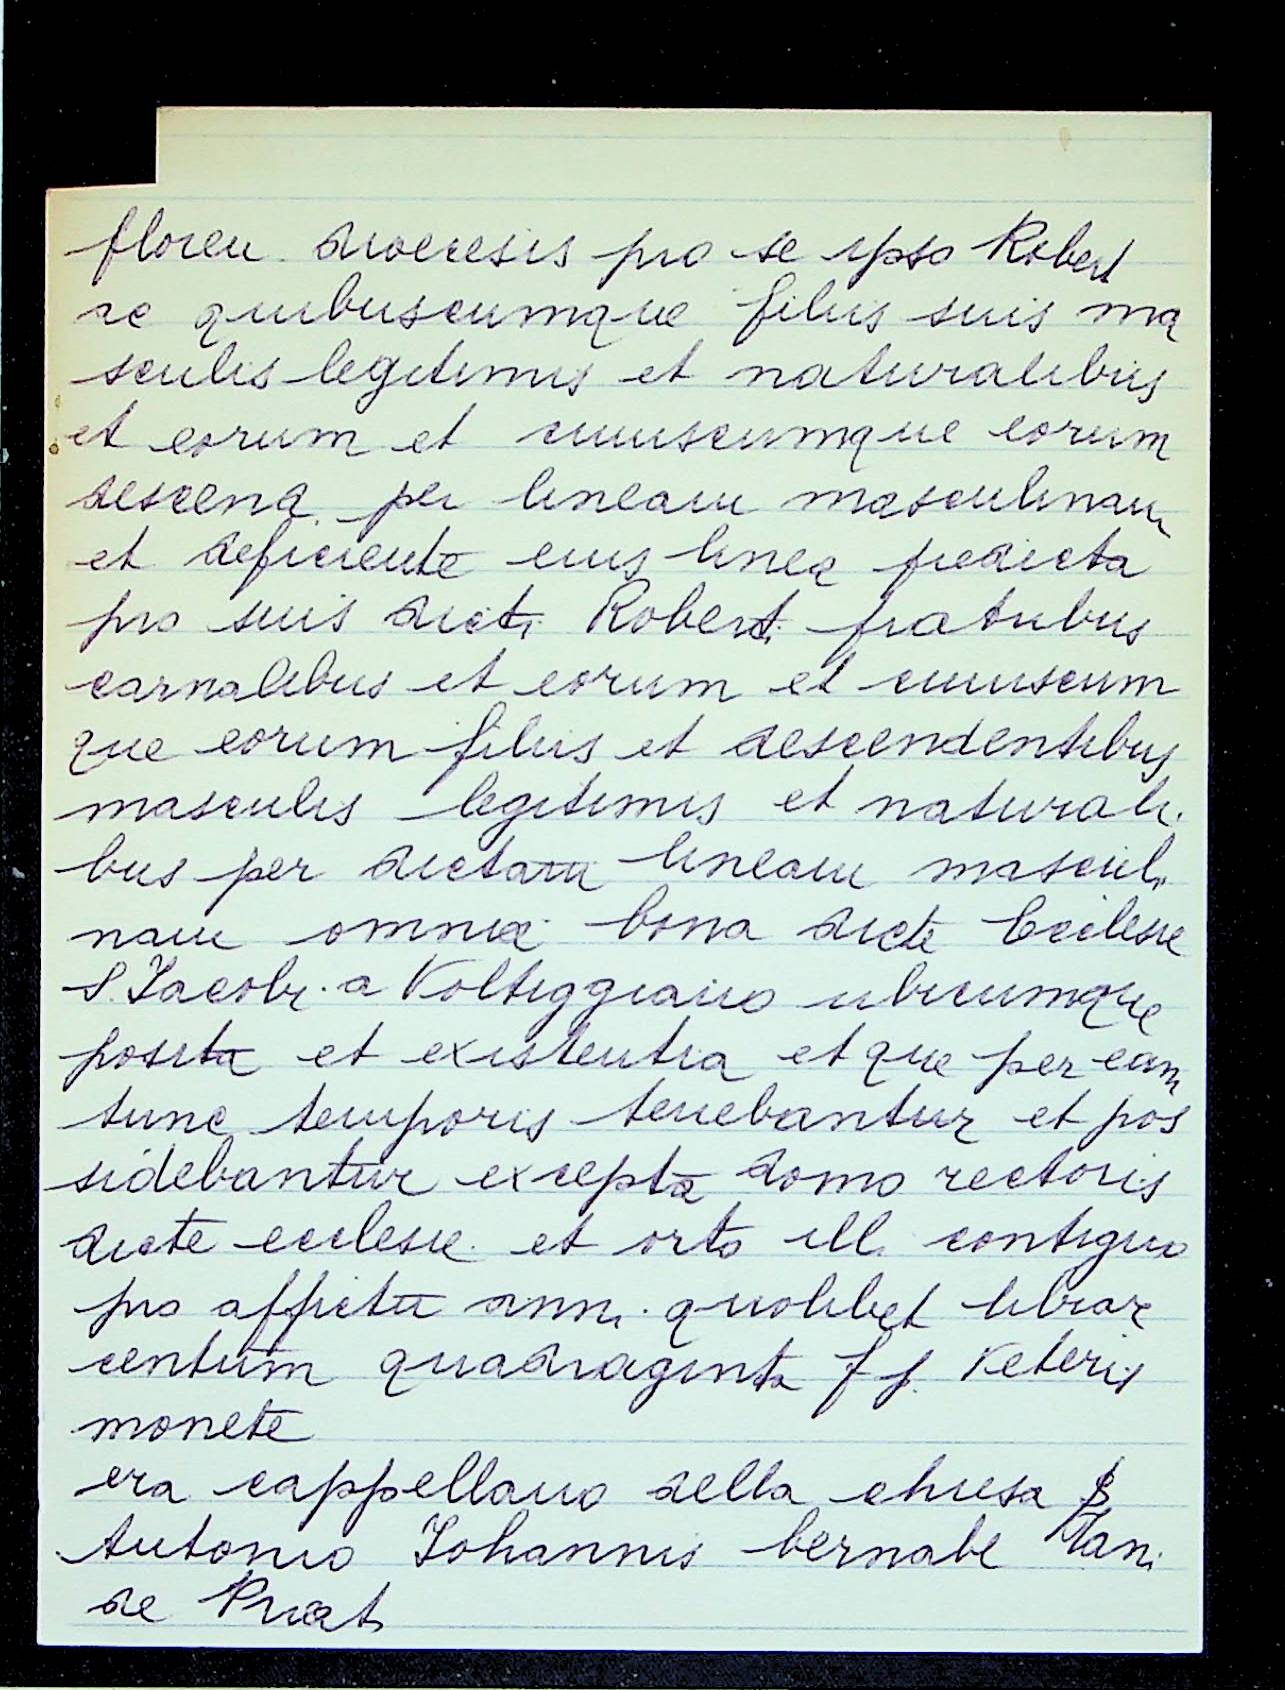 floren. diocesis pro se ipso Robert
ac quibuscumque filiis suis ma
sculis legitimis et naturalibus
et eorum et cuiuscumque eorum
descend. per lineam masculinam
et deficiente eius linea predicta
pro suis dicti Roberti fratribus
carnalibus et eorum et cuiuscum
que eorum filiis et descendentibus
masculis legitimis et naturali-
bus per dictam lineam masculi
nam omnia bona dicte Ecclesie
S. Jacobi a Voltiggiano ubicumque
posita et existentia et que per eam
tunc temporis tenebantur et pos
sidebantur excepta domo rectoris
dicte ecclesie et orto illi contiguo
pro affictu anni quolibet librar
centum quadraginta f p. veteris
monete
era cappellano della chiesa S
Antonio Johannis bernabe
de Prat